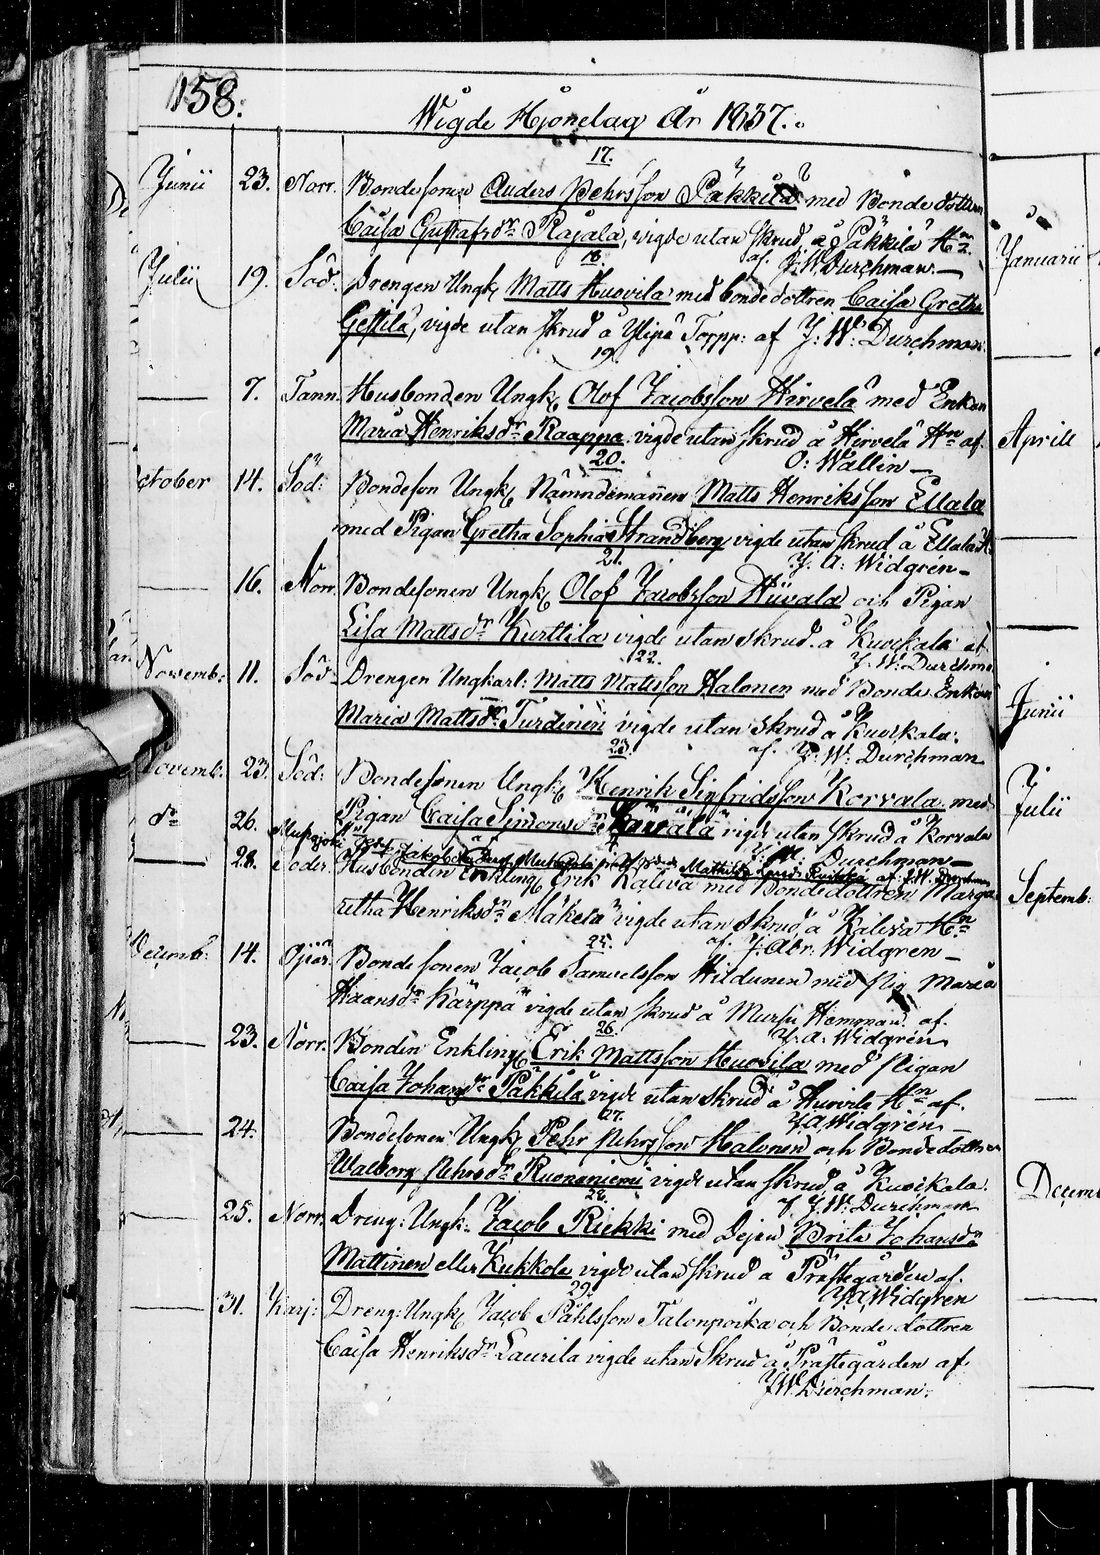 158.
Wigde Hjonelag År 1837.
17.
Junii 23. Norr. Bondesonen Anders Pehrsson Päkkilä med Bondedottren
Caisa Gustafsdr Rajala, vigde utan skrud, å Päkkilä Hn
af J. W. Durchman
18.
Julii 19. Söd. Drengen Ungk. Matts Huovila med bondedottren Caisa Greta
vigde utan skrud å Ylipä Torpp: af J: W: Durchman
19.
7. Tann. Husbonden Ungk. Olof Jacobsson Hirvelä med Enkan
Maria Henriksdr Kaappa vigde utan skrud å Hirvelä Hn af
O: Wallin
20.
October 14. Söd: Bondeson Ungk. Nämndemannen Matts Henriksson Ellala
med Pigan Gretha Sophia Strandberg vigde utan skrud å Ellala
J. A: Widgrén
21.
16. Norr. Bondesonen Ungk. Olof Jacobsson Hiivala och Pigan
Lisa Mattsdr Kurttila vigde utan skrud å Kuvikala af
J. W. Durchman
22.
Novemb: 11. Söd. Drengen Ungkarl: Matts Mattsson Halonen med Bonde Enkan
Maria Mattsdr Turdinen vigde utan skrud å Kuvikala:
af J: W: Durchman
23.
Novemb: 23. Söd: Bondesonen Ungk. Henrik Sigfridsson Korvala med
do 26. Pigan Caisa Simonsdr vigde utan skrud å Korvala
J. W: Durchman
28. Söder. Husbonden Enkling Erik Kaliva med Bondedottren Marga
retha Henriksdr Mäkelä vigde utan skrud å Kaliva Hn
af J. Abr. Widgren
25.
Decemb: 14. Bondesonen Jacob Samuelsson Hildunen med Pig. Maria
Haansdr Kärppä vigde utan skrud å Mursu Hemman af
J. A: Widgrén
26.
23. Norr. Bonden Enkling Erik Mattsson Huovila med Pigan
Caisa Johansdr Päkkilä vigde utan skrud å Huovila Hn af
J A Widgrén
27.
24. Bondesonen Ungk. Pehr Pehrsson Halonen och Bondedottren
Walborg Pehrsdr Kuonaniemi vigde utan skrud å Kuvikala
af J. W: Durchman
28.
25. Norr. Dreng: Ungk: Jacob Riekki med Dejan Brita Johansdr
Mattinen eller Kukkola vigde utan skrud å Prästegården af
J A Widgren
29.
31. Karj: Dreng: Ungk. Jacob Påhlsson Talonpoika och Bonde dottren
Caisa Henriksdr Laurila vigde utan skrud å Prästegården af
J W Durchman.
Januarii
Aprill
Junii
Julii
Septemb:
Decemb